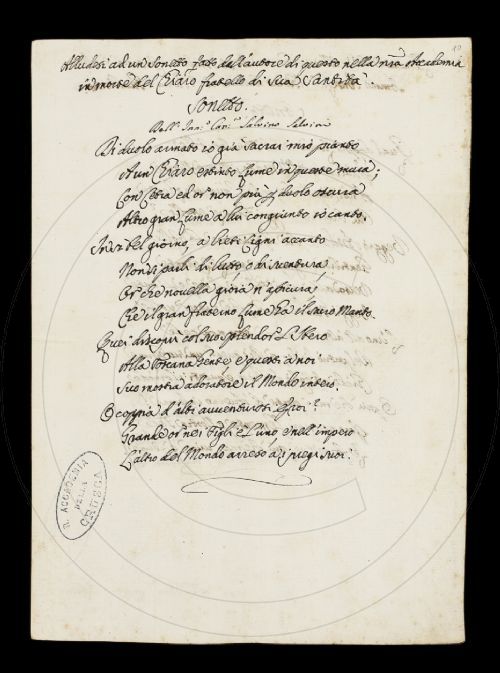 10
Alludesi ad un Sonetto fatto dall'autore di questo nella nrã Accademia
in morte del Chiaro fratello di Sua Santità.
Sonetto.
Dell' Inn.º Can.co Salvino Salvini
Di duolo armato io già sacrai mio pianto
A un Chiaro estinto Lume in queste mura;
Con Cetra ed or non più duolo oscura
Altro gran Lume a lui congiunto io canto.
In sì bel giorno, a lieti Cigni accanto
Non si parli di lutto, o di sventura,
Or che novella gioia n'assicura,
Che il gran fraterno Lume ha il sacro Manto.
Quei discoprì col suo splendor
Alla Toscana Gente, e questi a noi
Suo mostra adoratore il Mondo intero.
O coppia d'alti avventurosi Eroi!
Grande or ne' Figli è l'uno, e nell'impero
L'altro del Mondo arreso a' pregi suoi.
R. ACCADEMIA
DELLA
CRUSCA